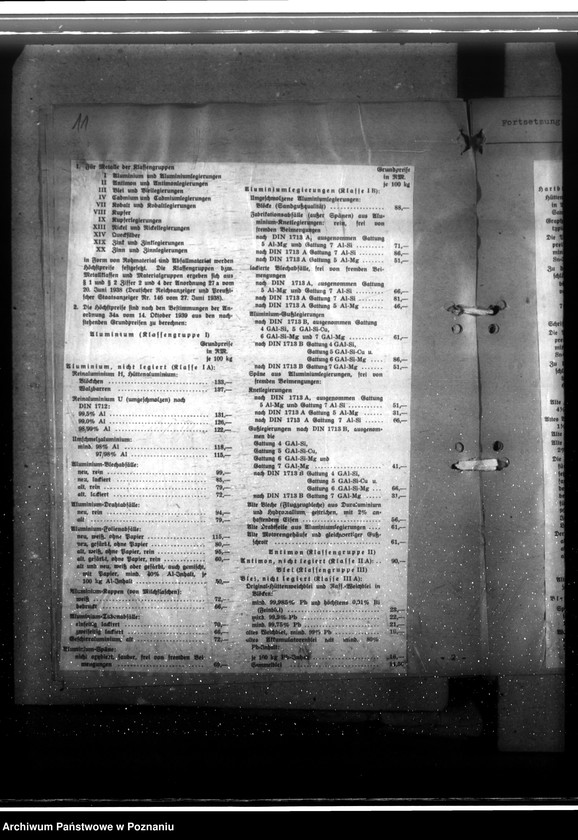 11
1. Für Metalle der Klassengruppen
I Aluminium und Aluminiumlegierungen
II Antimon und Antimonlegierungen
III Blei und Bleilegierungen
IV Cadmium und Cadmiumlegierungen
VII Kobalt und Kobaltlegierungen
VIII Kupfer
IX Kupferlegierungen
XIII Nickel und Nickellegierungen
XIV Quecksilber
XIX Zink und Zinklegierungen
XX Zinn und Zinnlegierungen
in Form von Rohmaterial und Abfallmaterial werden
Höchstpreise festgesetzt. Die Klassengruppen bzw.
Metallklassen und Materialgruppen ergeben sich aus
§ 1 und § 2 Ziffer 2 und 4 der Anordnung 37a vom
20. Juni 1938 (Deutscher Reichsanzeiger und Preußi-
scher Staatsanzeiger Nr. 146 vom 27. Juni 1938).
2. Die Höchstpreise sind nach den Bestimmungen der An-
ordnung 34a vom 14. Oktober 1939 aus den nach-
stehenden Grundpreisen zu berechnen:
Aluminium (Klassengruppe I)
Grundpreise
in RM.
je 100 kg
Aluminium, nicht legiert (Klasse I A):
Reinaluminium H, Hüttenaluminium:
Blöckchen 133,—
Walzbarren 137,—
Reinaluminium U (umgeschmolzen) nach
DIN 1712:
99,5% Al 131,—
99,0% Al 126,—
98/99% Al 122,—
Umschmelzaluminium:
mind. 98% Al 118,—
97/98% Al 115,—
Aluminium-Blechabfälle:
neu, rein 99,—
neu, lackiert 85,—
alt, rein 79,—
alt, lackiert 72,—
Aluminium-Drahtabfälle:
neu, rein 94,—
alt 79,—
Aluminium-Folienabfälle:
neu, weiß, ohne Papier 115,—
neu, gefärbt, ohne Papier 90,—
alt, weiß, ohne Papier, rein 95,—
alt, gefärbt, ohne Papier, rein 60,—
alt und neu, weiß oder gefärbt, auch gemischt,
mit Papier, mind. 40% Al-Inhalt, je
100 kg Al-Inhalt 40,—
Aluminium-Kappen (von Milchflaschen):
weiß 72,—
bedruckt 66,—
Aluminium-Tubenabfälle:
einseitig lackiert 70,—
zweiseitig lackiert 66,—
Geschirraluminium, alt 72,—
Aluminium-Späne:
nicht oxydiert, sauber, frei von fremden Bei-
mengungen
Grundpreise
in RM.
je 100 kg
Aluminiumlegierungen (Klasse I B):
Umgeschmolzene Aluminiumlegierungen:
Blöcke (Sandgußqualität) 88,—
Fabrikationsabfälle (außer Spänen) aus Alu-
minium-Knetlegierungen: rein, frei von
fremden Beimengungen
nach DIN 1713 A, ausgenommen Gattung
5 Al-Mg und Gattung 7 Al-Si 71,—
nach DIN 1713 A Gattung 7 Al-Si 86,—
nach DIN 1713 A Gattung 5 Al-Mg 51,—
lackierte Blechabfälle, frei von fremden Bei-
mengungen
nach DIN 1713 A, ausgenommen Gattung
5 Al-Mg und Gattung 7 Al-Si 66,—
nach DIN 1713 A Gattung 7 Al-Si 81,—
nach DIN 1713 A Gattung 5 Al-Mg 46,—
Aluminium-Gußlegierungen
nach DIN 1713 B, ausgenommen Gattung
4 GAl-Si, 5 GAl-Si-Cu,
6 GAl-Si-Mg und 7 GAl-Mg 61,—
nach DIN 1713 B Gattung 4 GAl-Si,
Gattung 5 GAl-Si-Cu u.
Gattung 6 GAl-Si-Mg 86,—
nach DIN 1713 B Gattung 7 GAl-Mg 51,—
Späne aus Aluminiumlegierungen, frei von
fremden Beimengungen:
Knetlegierungen
nach DIN 1713 A, ausgenommen Gattung
5 Al-Mg und Gattung 7 Al-Si 51,—
nach DIN 1713 A Gattung 5 Al-Mg 31,—
nach DIN 1713 A Gattung 7 Al-Si 66,—
Gußlegierungen nach DIN 1713 B, ausgenom-
men die
Gattung 4 GAl-Si,
Gattung 5 GAl-Si-Cu,
Gattung 6 GAl-Si-Mg und
Gattung 7 GAl-Mg 41,—
nach DIN 1713 B Gattung 4 GAl-Si,
Gattung 5 GAl-Si-Cu u.
Gattung 6 GAl-Si-Mg 66,—
nach DIN 1713 B Gattung 7 GAl-Mg 31,—
Alte Bleche (Flugzeugbleche) aus Duraluminium
und Hydronalium gestrichen, mit 2% an-
haftendem Eisen 56,—
Alte Drahtseile aus Aluminiumlegierungen 61,—
Alte Motorengehäuse und gleichwertiger Guß-
schrott 61,—
Antimon (Klassengruppe II)
Antimon, nicht legiert (Klasse II A): 90,—
Blei (Klassengruppe III)
Blei, nicht legiert (Klasse III A):
Original-Hüttenweichblei und Raff.-Weichblei in
Blöcken:
mind. 99,985% Pb und höchstens 0,01% Bi
(Feinblei) 22,—
mind. 99,9% Pb 22,—
mind. 99,75% Pb 21,—
altes Weichblei, mind. 99% Pb
altes Akkumulatorenblei mit mind.
Pb-Inhalt:
je 100 kg Pb-Inhalt
Fortsetzung
Archiwum Państwowe w Poznaniu